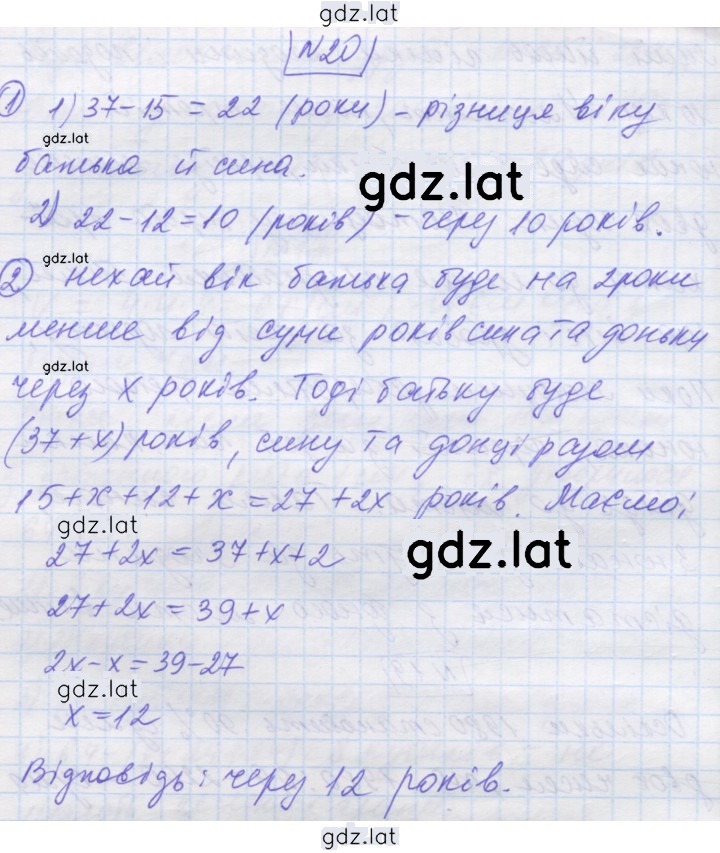 gdz.lat
№20
① 1) 37-15 = 22 (роки) - різниця віку
gdz.lat
батька й сина.
gdz.lat
2) 22-12=10 (років) - через 10 років.
② нехай вік батька буде на 2 роки
менше від суми років сина та доньки
gdz.lat
через x років. Тоді батьку буде
(37+x) років, сину та донці разом
15+x+12+x=27+2x років. Маємо:
gdz.lat
27+2x = 37+x+2
gdz.lat
27+2x = 39+x
2x-x=39-27
gdz.lat
x=12
Відповідь: через 12 років.
gdz.lat